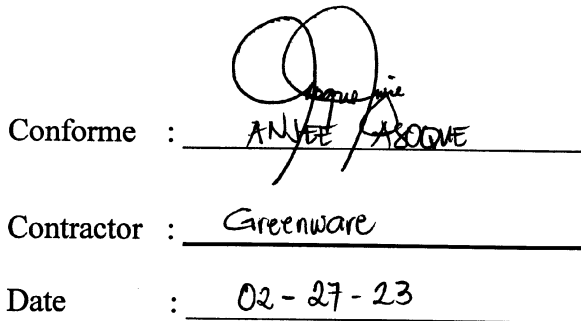 Conforme : ANJEE ASOQUE
Contractor : Greenware
Date : 02-27-23